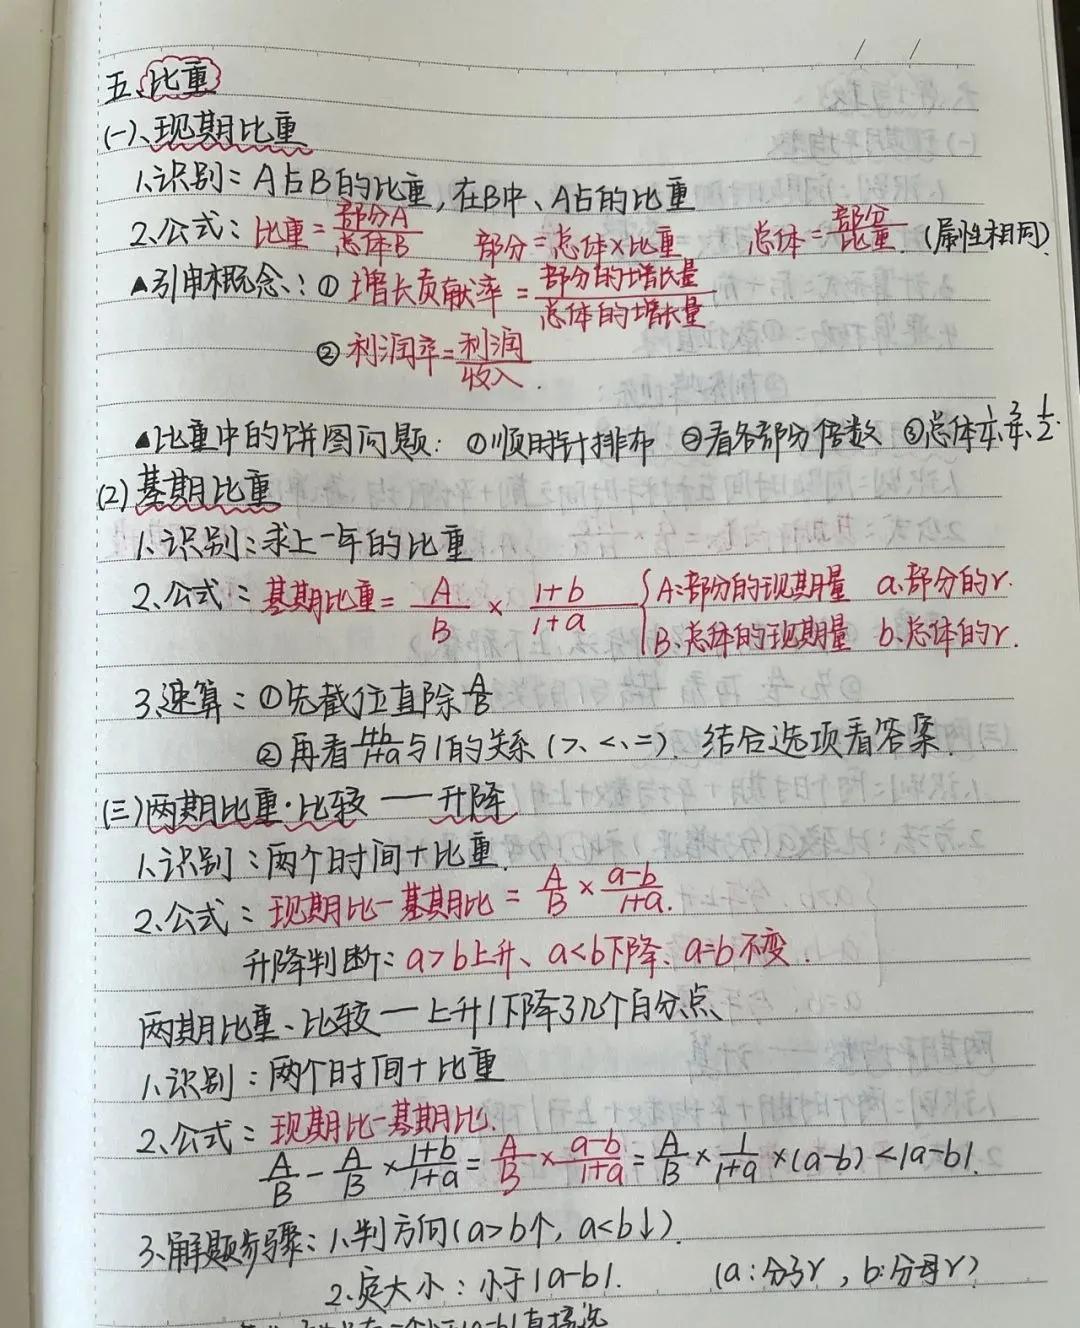 五、比重
(一)、现期比重
1、识别：A占B的比重,在B中、A占的比重
2、公式：比重=部分A/总体B 部分=总体×比重 总体=部分/比重 (属性相同)
▲引申概念：① 增长贡献率=部分的增长量/总体的增长量
② 利润率=利润/收入.
▲比重中的饼图问题：①顺时针排布 ②看各部分倍数 ③总体
(2)基期比重
1、识别：求上一年的比重
2、公式：基期比重= A/B × 1+b/1+a { A:部分的现期量 a:部分的r.
B、总体的现期量 b、总体的r.
3、速算：①先截位直除A/B
②再看1+b/1+a与1的关系(>、<、=). 结合选项看答案.
(三)两期比重·比较——升降
1、识别：两个时间+比重.
2、公式：现期比-基期比= A/B × a-b/1+a.
升降判断：a>b上升、a<b下降、a=b不变.
两期比重、比较—上升/下降了几个百分点
1、识别：两个时间+比重
2、公式：现期比-基期比.
A/B - A/B × 1+b/1+a = A/B × a-b/1+a = A/B × 1/1+a ×(a-b) <|a-b|.
3、解题步骤：1、判方向(a>b↑, a<b↓).
2、定大小：小于|a-b|. (a:分子r, b:分母r)